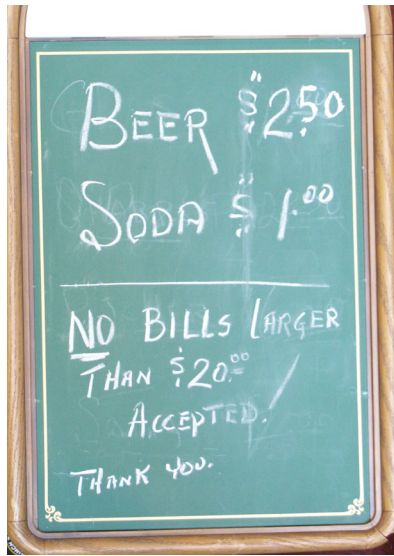 BEER $2.50
SODA $1.00
NO BILLS LARGER
THAN $20.00
ACCEPTED.
THANK YOU.